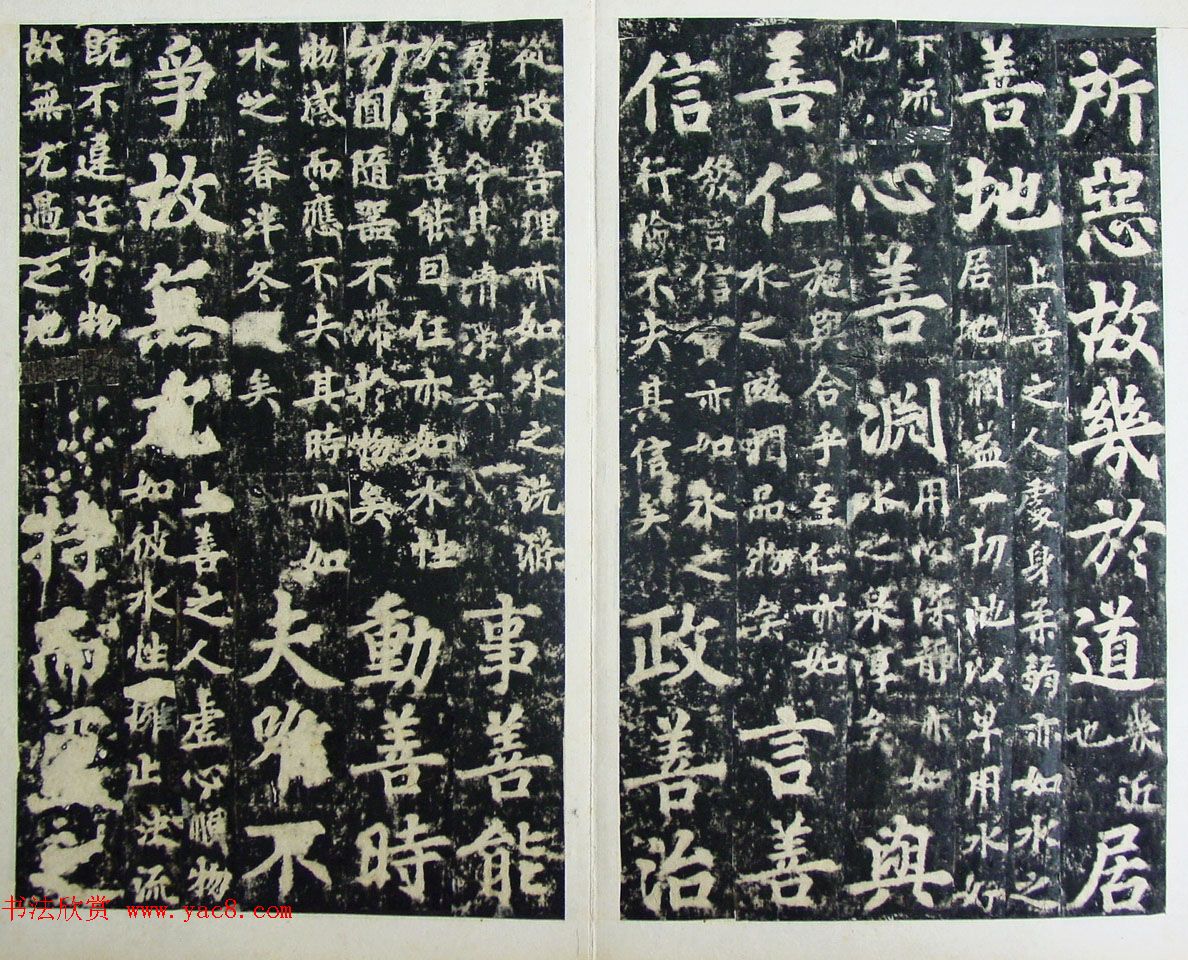 所惡故幾於道
㡬近
也
居
善地
上善之人處身柔弱亦如水之
居地潤益一切地以卑用水好
下流
也
心善淵
用心深靜亦如
水之泉渟矣
與
善仁
施與合乎至仁亦如
水之滋潤品物矣
言善
信
發言信實亦如水之
行險不失其信矣
政善治
從政善理亦如水之洗滌
羣物令其清淨矣
事善能
於事善能因任亦如水性
方圓隨器不滯於物矣
動善時
物感而應不失其時亦如
水之春泮冬矣
夫唯不
爭故無尤
上善之人虛心順物
如彼水性壅止決流
既不違迕於物
故無尤過之地
持而盈之
书法欣赏 www.yac8.com